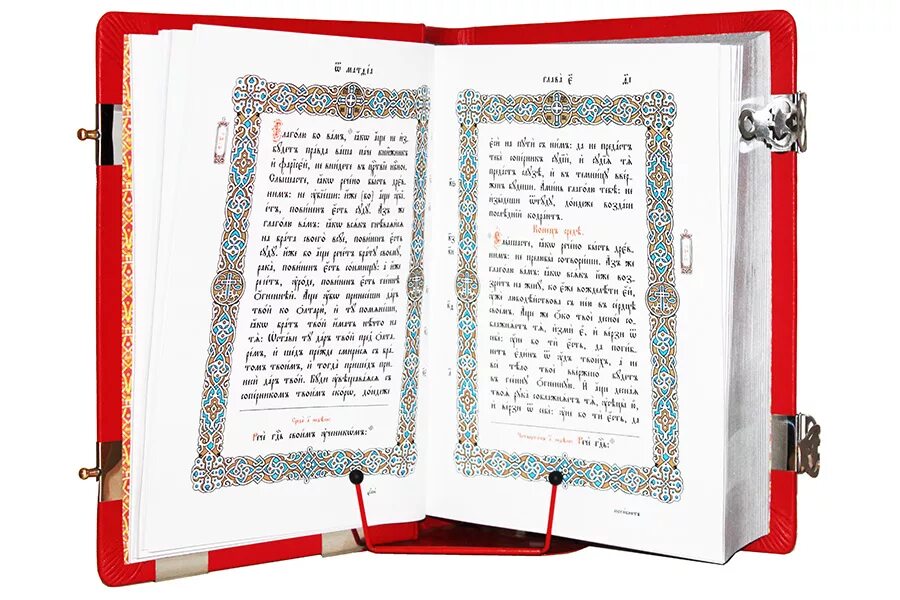 Ѿ матѳі́а
Глаго́лю бо ва́мъ, ꙗ҆́кѡ а҆́ще не и҆з-
бꙋ́детъ пра́вда ва́ша па́че кни̑жникъ
и҆ фарїсє́й, не вни́дете въ црⷭ҇твїе нбⷭ҇ное.
Слы́шасте, ꙗ҆́кѡ рече́но бы́сть дрє́в-
нимъ: не ᲂу҆бїе́ши: и҆́же (бо) а҆́ще ᲂу҆бї-
е́тъ, пови́ненъ є҆́сть сꙋдꙋ̀. А҆́зъ же
глаго́лю ва́мъ: ꙗ҆́кѡ всѧ́къ гнѣ́ваѧйсѧ
на бра́та своего̀ всꙋ́е, пови́ненъ є҆́сть
сꙋдꙋ̀: и҆́же бо а҆́ще рече́тъ бра́тꙋ своемꙋ̀,
рака̀, пови́ненъ є҆́сть сонмищꙋ: а҆ и҆́же
рече́тъ, ᲂу҆ро́де, пови́ненъ є҆́сть гее́ннѣ
ѻ҆́гненнѣй. А҆́ще ᲂу҆̀бо принесе́ши да́ръ
тво́й ко ѻ҆лтарю̀, и҆ тꙋ̀ помѧне́ши,
ꙗ҆́кѡ бра́тъ тво́й и҆́мать нѣ́что на
тѧ̀: Ѡ҆ста́ви тꙋ̀ да́ръ тво́й пред̾ ѻ҆лта-
ре́мъ, и҆ ше́дъ пре́жде смири́сѧ съ бра́-
томъ твои́мъ, и҆ тогда̀ прише́дъ при-
несѝ да́ръ тво́й. Бꙋ́ди ᲂу҆вѣщава́ѧсѧ съ
сопе́рникомъ твои́мъ ско́рѡ, до́ндеже
Речѐ гдⷭ҇ь свои̑мъ ᲂу҆чн҃кѡ́мъ:
Глава̀ є҃
є҆сѝ на пꙋтѝ съ ни́мъ: да не преда́стъ
тебѐ сопе́рникъ сꙋдїѝ, и҆ сꙋдїѧ̀ тѧ̀
преда́стъ слꙋзѣ̀, и҆ въ темни́цꙋ вве́р-
женъ бꙋ́деши. А҆ми́нь глаго́лю тебѣ̀: не
и҆зы́деши ѿтꙋ́дꙋ, до́ндеже возда́си
послѣ́дній кодра́нтъ.
Коне́цъ средѣ̀.
Слы́шасте, ꙗ҆́кѡ рече́но бы́сть дрє́в-
нимъ: не прелюбы̀ сотвори́ши. А҆́зъ же
глаго́лю ва́мъ: ꙗ҆́кѡ всѧ́къ, и҆́же воз-
зри́тъ на женꙋ̀, ко є҆́же вожделѣ́ти є҆ѧ̀,
ᲂу҆жѐ любодѣ́йствова съ не́ю въ се́рдцѣ
свое́мъ. А҆́ще же ѻ҆́ко твоѐ десно́е со-
блажнѧ́етъ тѧ̀, и҆змѝ є҆̀, и҆ ве́рзи ѿ
себє̀: ᲂу҆́не бо тѝ є҆́сть, да поги́б-
нетъ є҆ди́нъ ѿ ᲂу҆́дъ твои́хъ, а҆ не
всѐ тѣ́ло твоѐ вве́ржено бꙋ́детъ
въ гее́ннꙋ ѻ҆́гненнꙋю. И҆ а҆́ще десна́ѧ
твоѧ̀ рꙋка̀ соблажнѧ́етъ тѧ̀, ᲂу҆сѣцы̀ ю҆̀,
и҆ ве́рзи ѿ себє̀: ᲂу҆́не бо тѝ є҆́сть, да
Речѐ гдⷭ҇ь:
поги́бнетъ